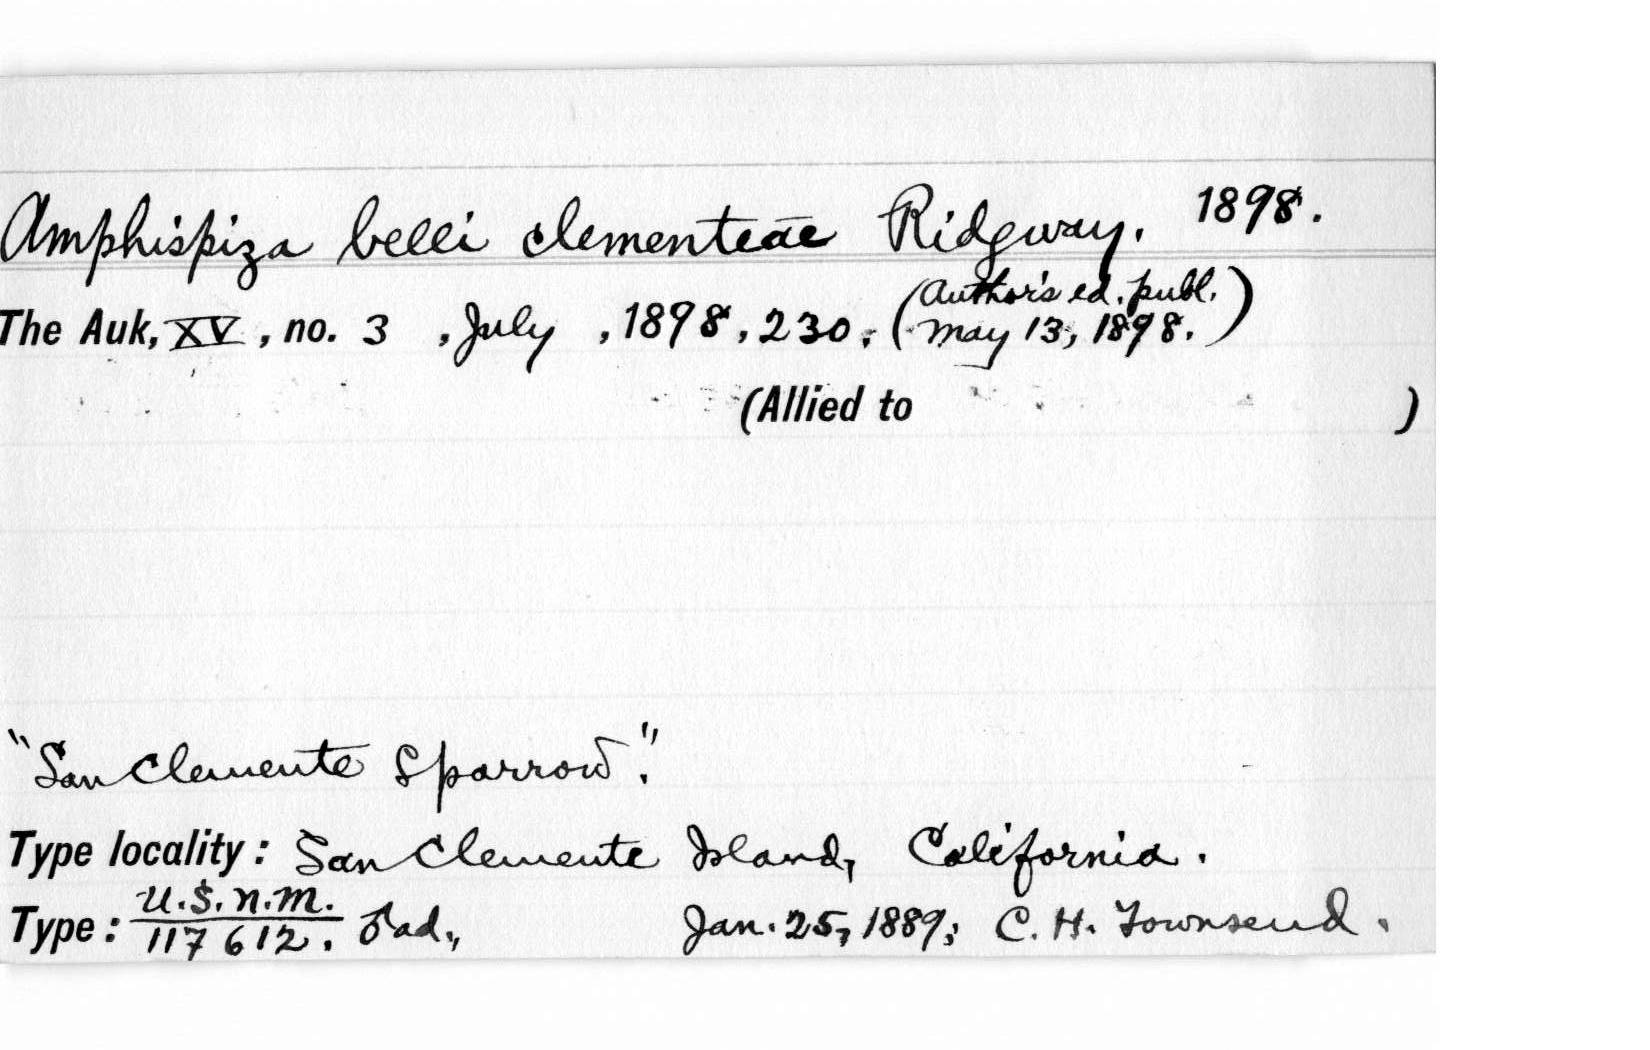 Amphispiza belli clementeae Ridgway. 1898.
(Author's ed. publ.
The Auk, XV, no. 3, July, 1898, 230; May 13, 1898.)
(Allied to )
"San Clemente Sparrow."
Type locality: San Clemente Island, California.
U.S.N.M.
Type: 117612. ♂ ad., Jan. 25, 1889; C. H. Townsend.